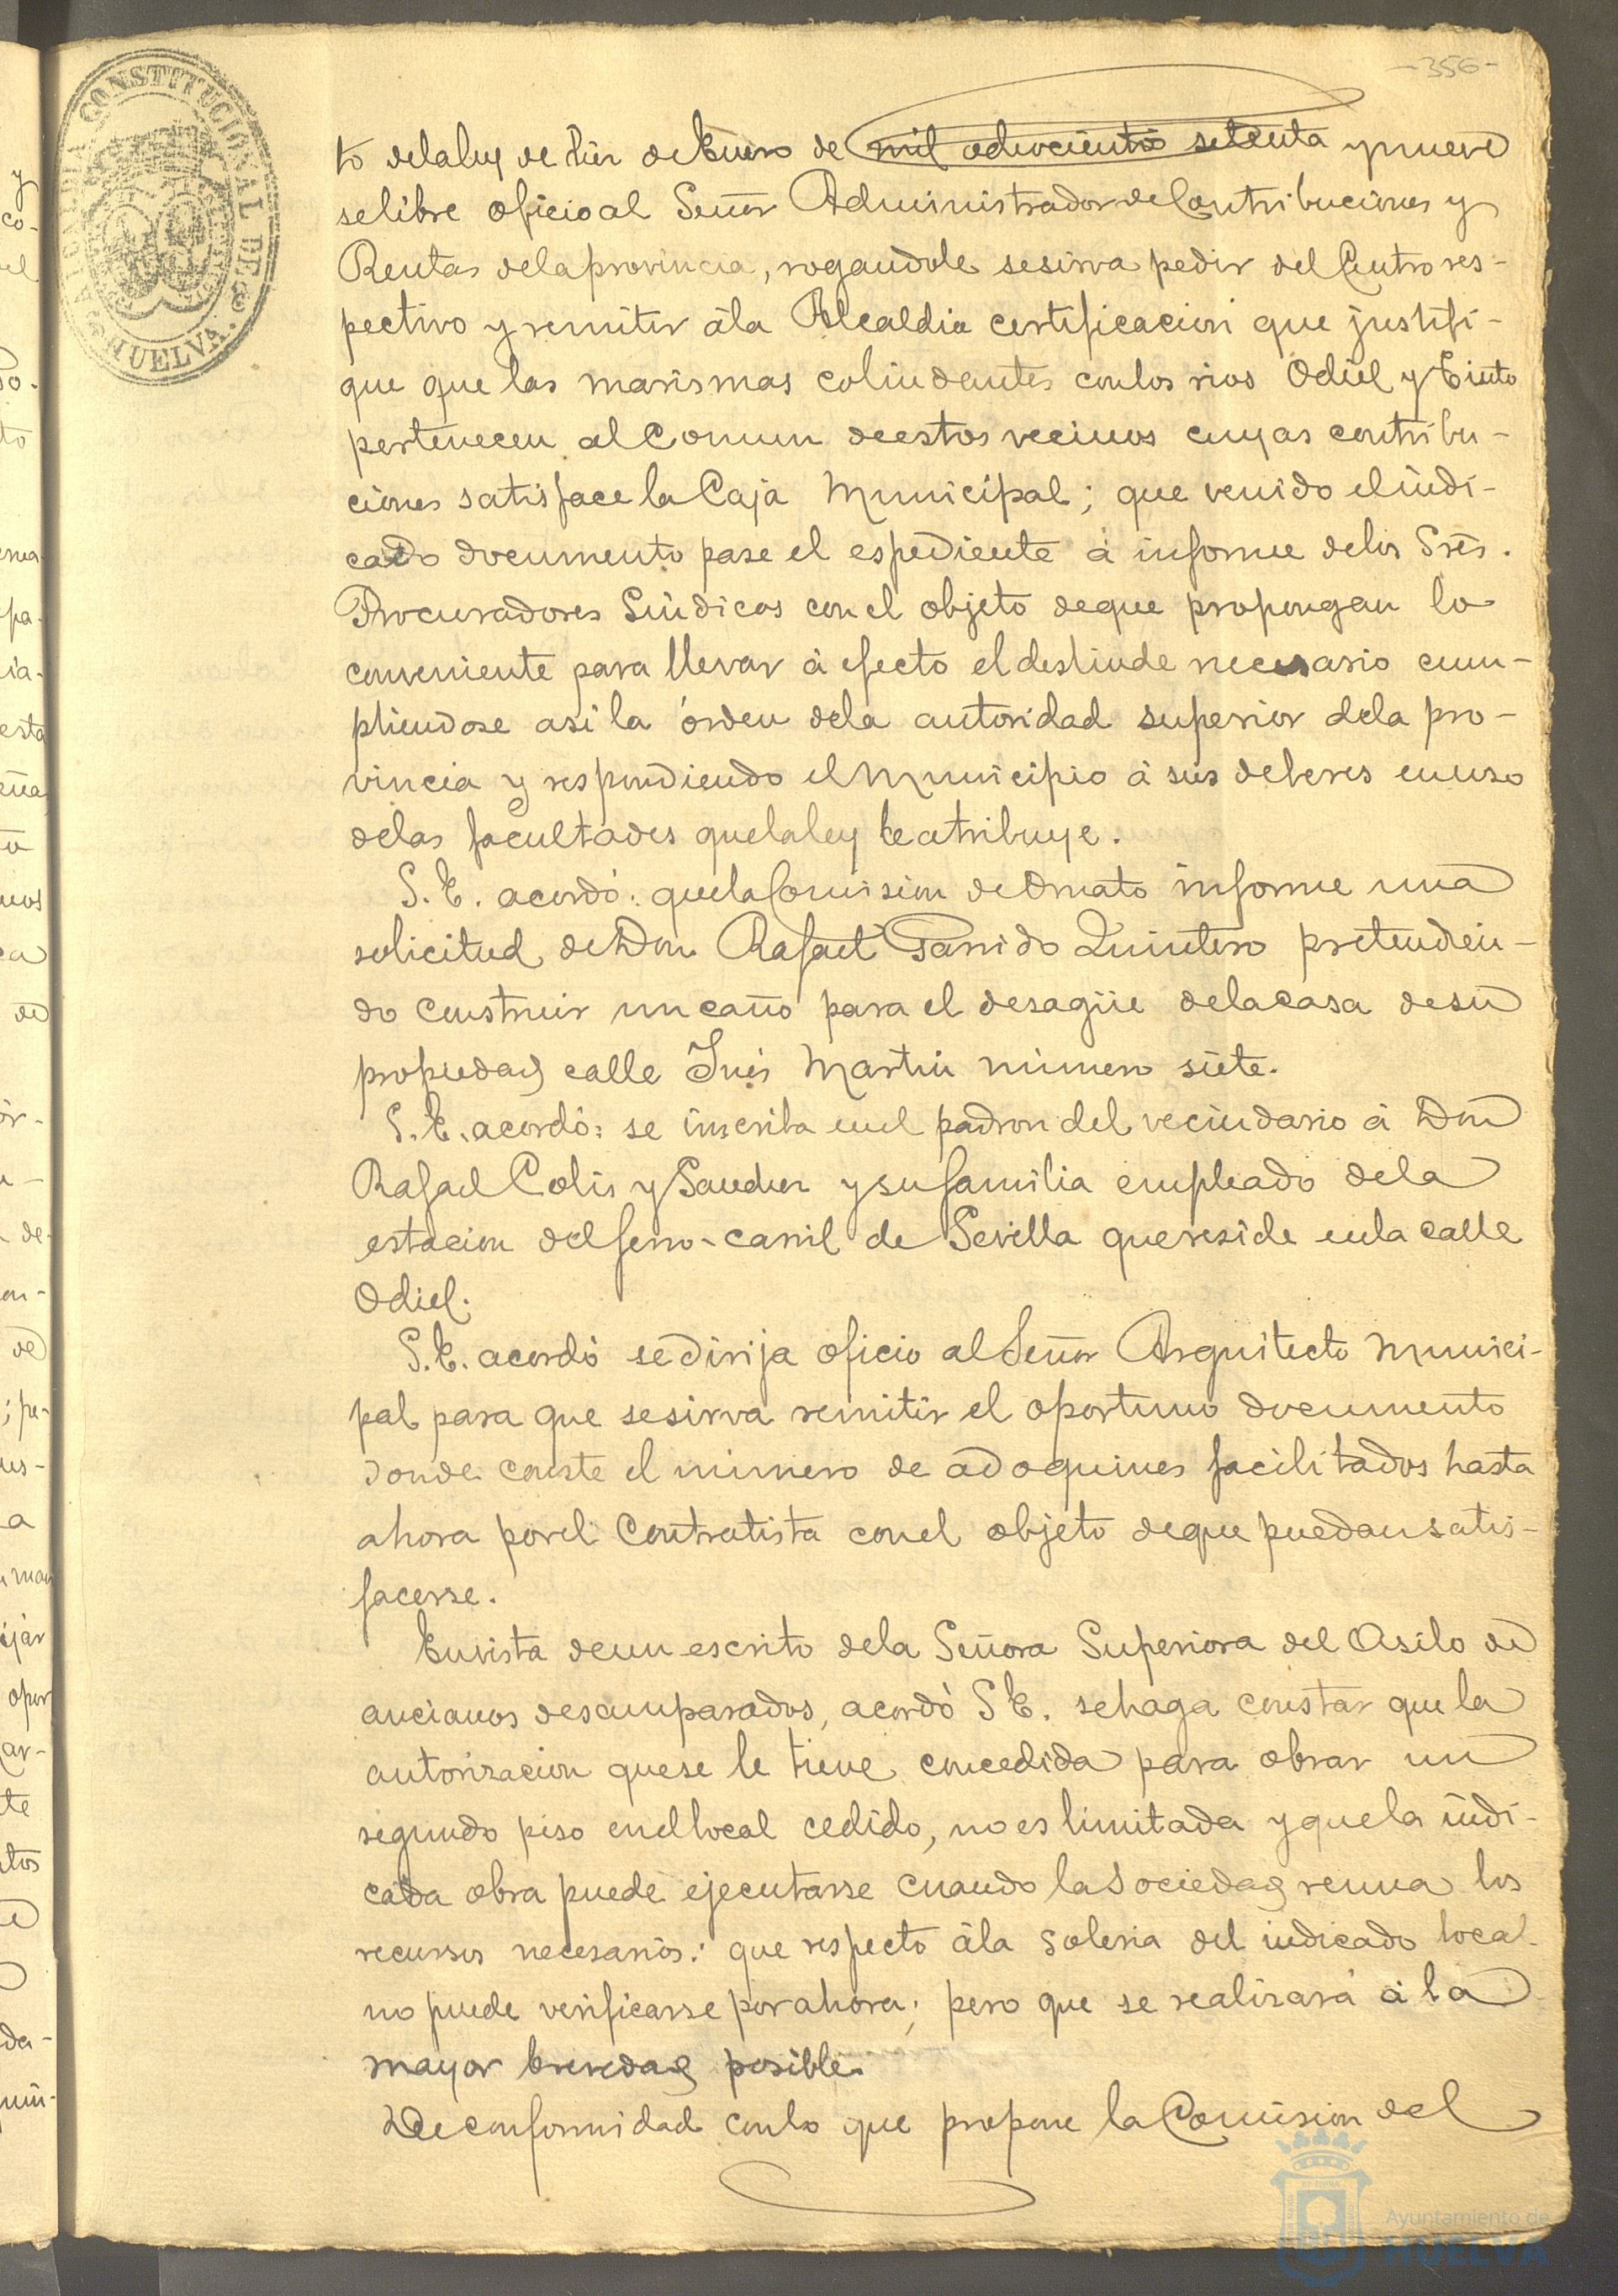 -356-
ALCALDIA CONSTITUCIONAL DE HUELVA.
to de la ley de diez de Enero de mil ochocientos setenta y nueve
se libre oficio al Señor Administrador de Contribuciones y
Rentas de la provincia, rogandole se sirva pedir del Centro res-
pectivo y remitir á la Alcaldia certificacion que justifi-
que que las marismas colindantes con los rios Odiel y Tinto
pertenecen al Comun de estos vecinos cuyas contribu-
ciones satisface la Caja Municipal; que venido el indi-
cado documento pase el espediente á informe de los Sres.
Procuradores Sindicos con el objeto de que propongan lo
conveniente para llevar á efecto el deslinde necesario cum-
pliendose asi la órden de la autoridad superior de la pro-
vincia y respondiendo el Municipio á sus deberes en uso
de las facultades que la ley le atribuye.
S. E. acordó: que la Comision de Ornato informe una
solicitud de Don Rafael Garrido Quintero pretendien-
do construir un caño para el desagüe de la casa de su
propiedad calle Inés Martin número siete.
S. E. acordó: se inscriba en el padron del vecindario á Don
Rafael Colis y y su familia empleado de la
estacion del ferro-carril de Sevilla que reside en la calle
Odiel.
S. E. acordó se dirija oficio al Señor Arquitecto Munici-
pal para que se sirva remitir el oportuno documento
donde conste el número de adoquines facilitados hasta
ahora por el Contratista con el objeto de que puedan satis-
facerse.
En vista de un escrito de la Señora Superiora del Asilo de
ancianos desamparados, acordó S E. se haga constar que la
autorizacion que se le tiene concedida para obrar un
segundo piso en el local cedido, no es limitada y que la indi-
cada obra puede ejecutarse cuando la Sociedad reuna los
recursos necesarios: que respecto á la soleria del indicado local
no puede verificarse por ahora; pero que se realizará á la
mayor brevedad posible.
De conformidad con lo que propone la Comision del
Ayuntamiento de
HUELVA